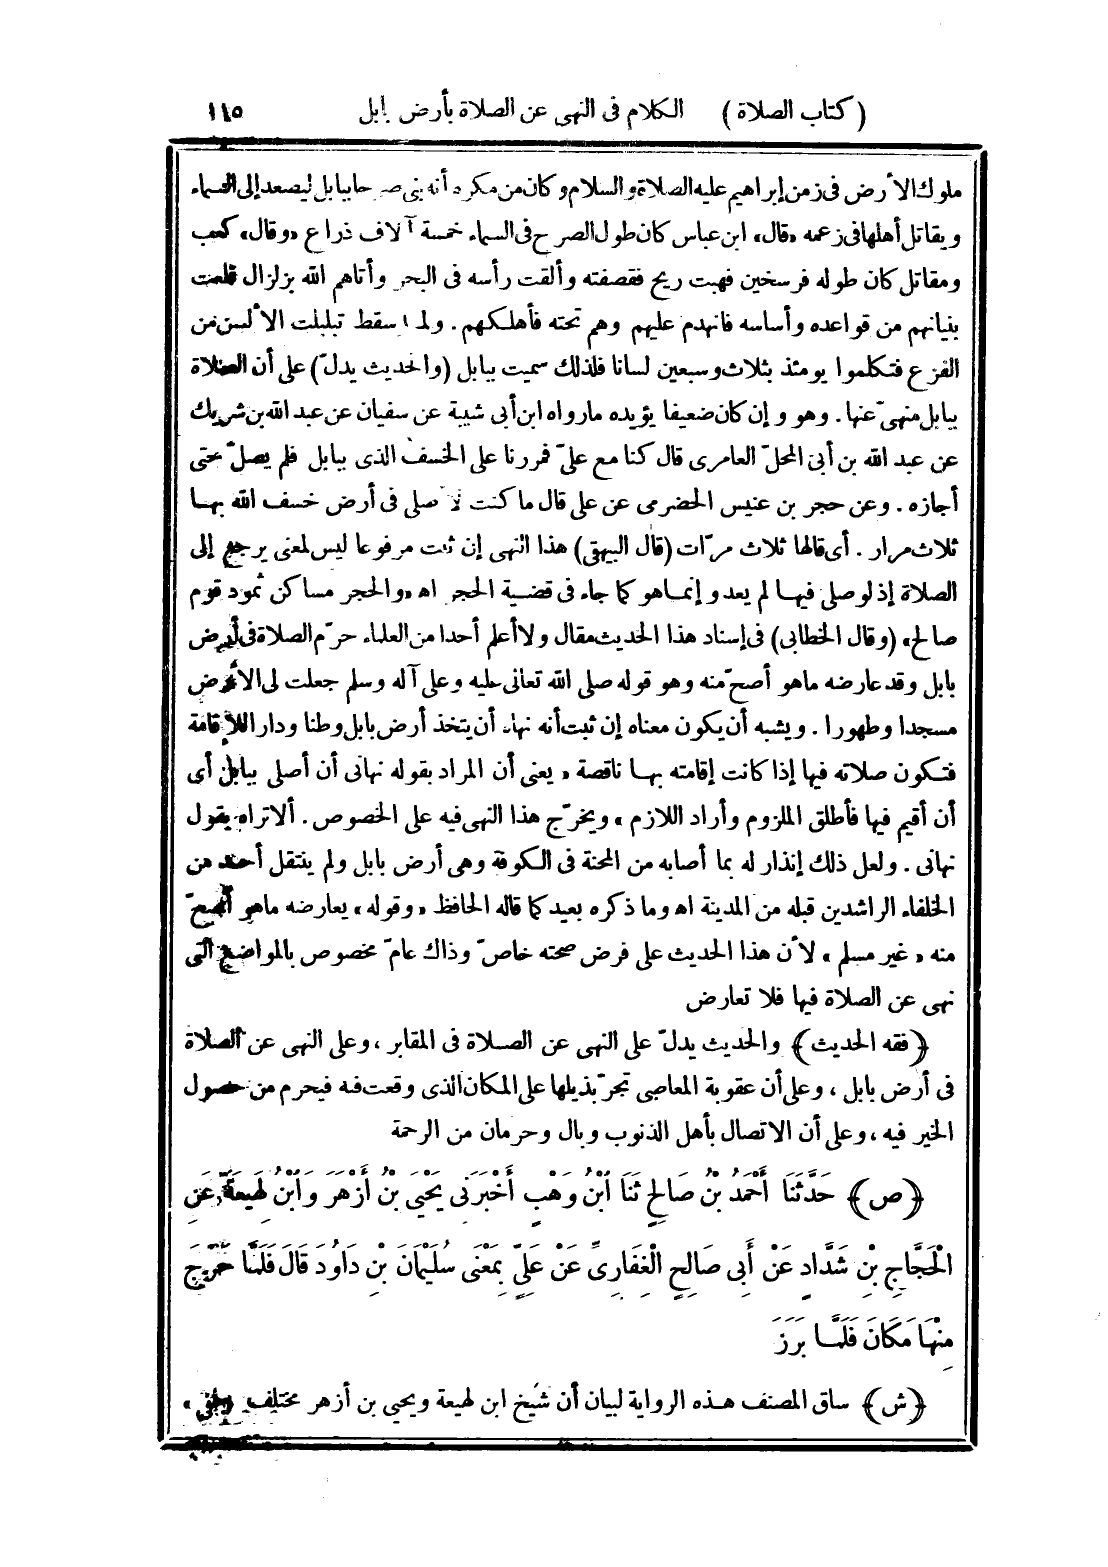 ( كتاب الصلاة ) الكلام فى النهى عن الصلاة بأرض بابل ١١٥
ملوك الأرض فى زمن إبراهيم عليه الصلاة والسلام وكان من مكره أنه بنى صرحا ببابل ليصعد إلى السماء
ويقاتل أهلها فى زعمه «قال» ابن عباس كان طول الصرح فى السماء خمسة آلاف ذراع «وقال» كعب
ومقاتل كان طوله فرسخين فهبت ريح فقصفته وألقت رأسه فى البحر وأتاهم الله بزلزال قلعت
بنيانهم من قواعده وأساسه فانهدم عليهم وهم تحته فأهلكهم . ولما سقط تبلبلت الألسن من
الفزع فتكلموا يومئذ بثلاث وسبعين لسانا فلذلك سميت ببابل (والحديث يدلّ) على أن الصلاة
ببابل منهىّ عنها . وهو وإن كان ضعيفا يؤيده مارواه ابن أبى شيبة عن سفيان عن عبد الله بن شريك
عن عبد الله بن أبى المحلّ العامرى قال كنا مع علىّ فمررنا على الخسف الذى ببابل فلم يصلّ حتى
أجازه . وعن حجر بن عنبس الحضرمى عن على قال ما كنت لأصلى فى أرض خسف الله بها
ثلاث مرار . أى قالها ثلاث مرّات (قال البيهقى) هذا النهى إن ثبت مرفوعا ليس لمعنى يرجع إلى
الصلاة إذ لو صلى فيها لم يعد وإنما هو كما جاء فى قضية الحجر اه «والحجر مساكن ثمود قوم
صالح» (وقال الخطابى) فى إسناد هذا الحديث مقال ولا أعلم أحدا من العلماء حرّم الصلاة فى أرض
بابل وقد عارضه ماهو أصحّ منه وهو قوله صلى الله تعالى عليه وعلى آله وسلم جعلت لى الأرض
مسجدا وطهورا . ويشبه أن يكون معناه إن ثبت أنه نهاه أن يتخذ أرض بابل وطنا ودارا للإقامة
فتكون صلاته فيها إذا كانت إقامته بها ناقصة «يعنى أن المراد بقوله نهانى أن أصلى ببابل أى
أن أقيم فيها فأطلق الملزوم وأراد اللازم» ويخرّج هذا النهى فيه على الخصوص . ألا تراه يقول
نهانى . ولعل ذلك إنذار له بما أصابه من المحنة فى الكوفة وهى أرض بابل ولم ينتقل أحد من
الخلفاء الراشدين قبله من المدينة اه وما ذكره بعيد كما قاله الحافظ «وقوله» يعارضه ماهو أصحّ
منه «غير مسلم» لأن هذا الحديث على فرض صحته خاصّ وذاك عامّ مخصوص بالمواضع التى
نهى عن الصلاة فيها فلا تعارض
﴿فقه الحديث﴾ والحديث يدلّ على النهى عن الصلاة فى المقابر ، وعلى النهى عن الصلاة
فى أرض بابل ، وعلى أن عقوبة المعاصى تجرّ بذيلها على المكان الذى وقعت فيه فيحرم من حصول
الخير فيه ، وعلى أن الاتصال بأهل الذنوب وبال وحرمان من الرحمة
﴿ص﴾ حَدَّثَنَا أَحْمَدُ بْنُ صَالِحٍ ثَنَا ابْنُ وَهْبٍ أَخْبَرَنِى يَحْيَى بْنُ أَزْهَرَ وَابْنُ لَهِيعَةَ عَنِ
الْحَجَّاجِ بْنِ شَدَّادٍ عَنْ أَبِى صَالِحٍ الْغِفَارِىِّ عَنْ عَلِىٍّ بِمَعْنَى سُلَيْمَانَ بْنِ دَاوُدَ قَالَ فَلَمَّا خَرَجَ
مِنْهَا مَكَانَ فَلَمَّا بَرَزَ
﴿ش﴾ ساق المصنف هذه الرواية لبيان أن شيخ ابن لهيعة ويحيى بن أزهر مختلف